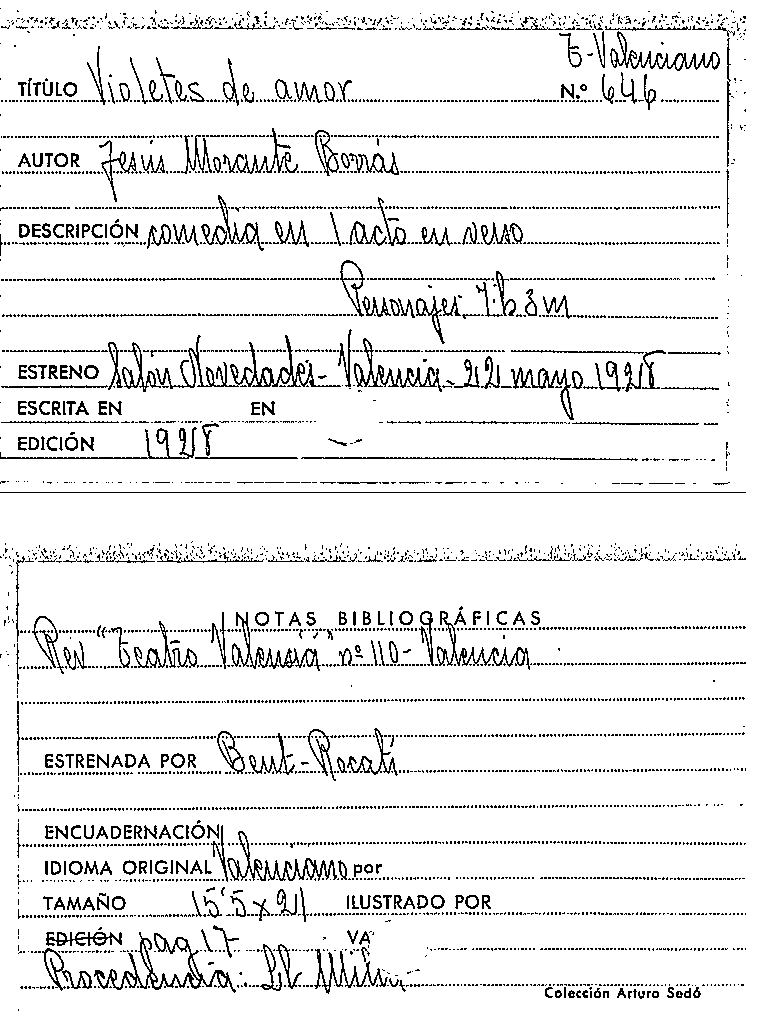 T-Valenciano
TÍTULO Violetes de amor N.º 646
AUTOR Jesús Morante Borrás
DESCRIPCIÓN comedia en 1 acto en verso
Personajes. 7 h 3 m
ESTRENO Salón Novedades - Valencia - 22 mayo 1928
ESCRITA EN EN
EDICIÓN 1928
NOTAS BIBLIOGRÁFICAS
Rev "Teatro Valensiá" nº 110 - Valencia
ESTRENADA POR Beut - Rocatí
ENCUADERNACIÓN
IDIOMA ORIGINAL Valenciano por
TAMAÑO 15'5 x 21 ILUSTRADO POR
EDICIÓN pag 17 VA
Procedencia:
Colección Arturo Sedó